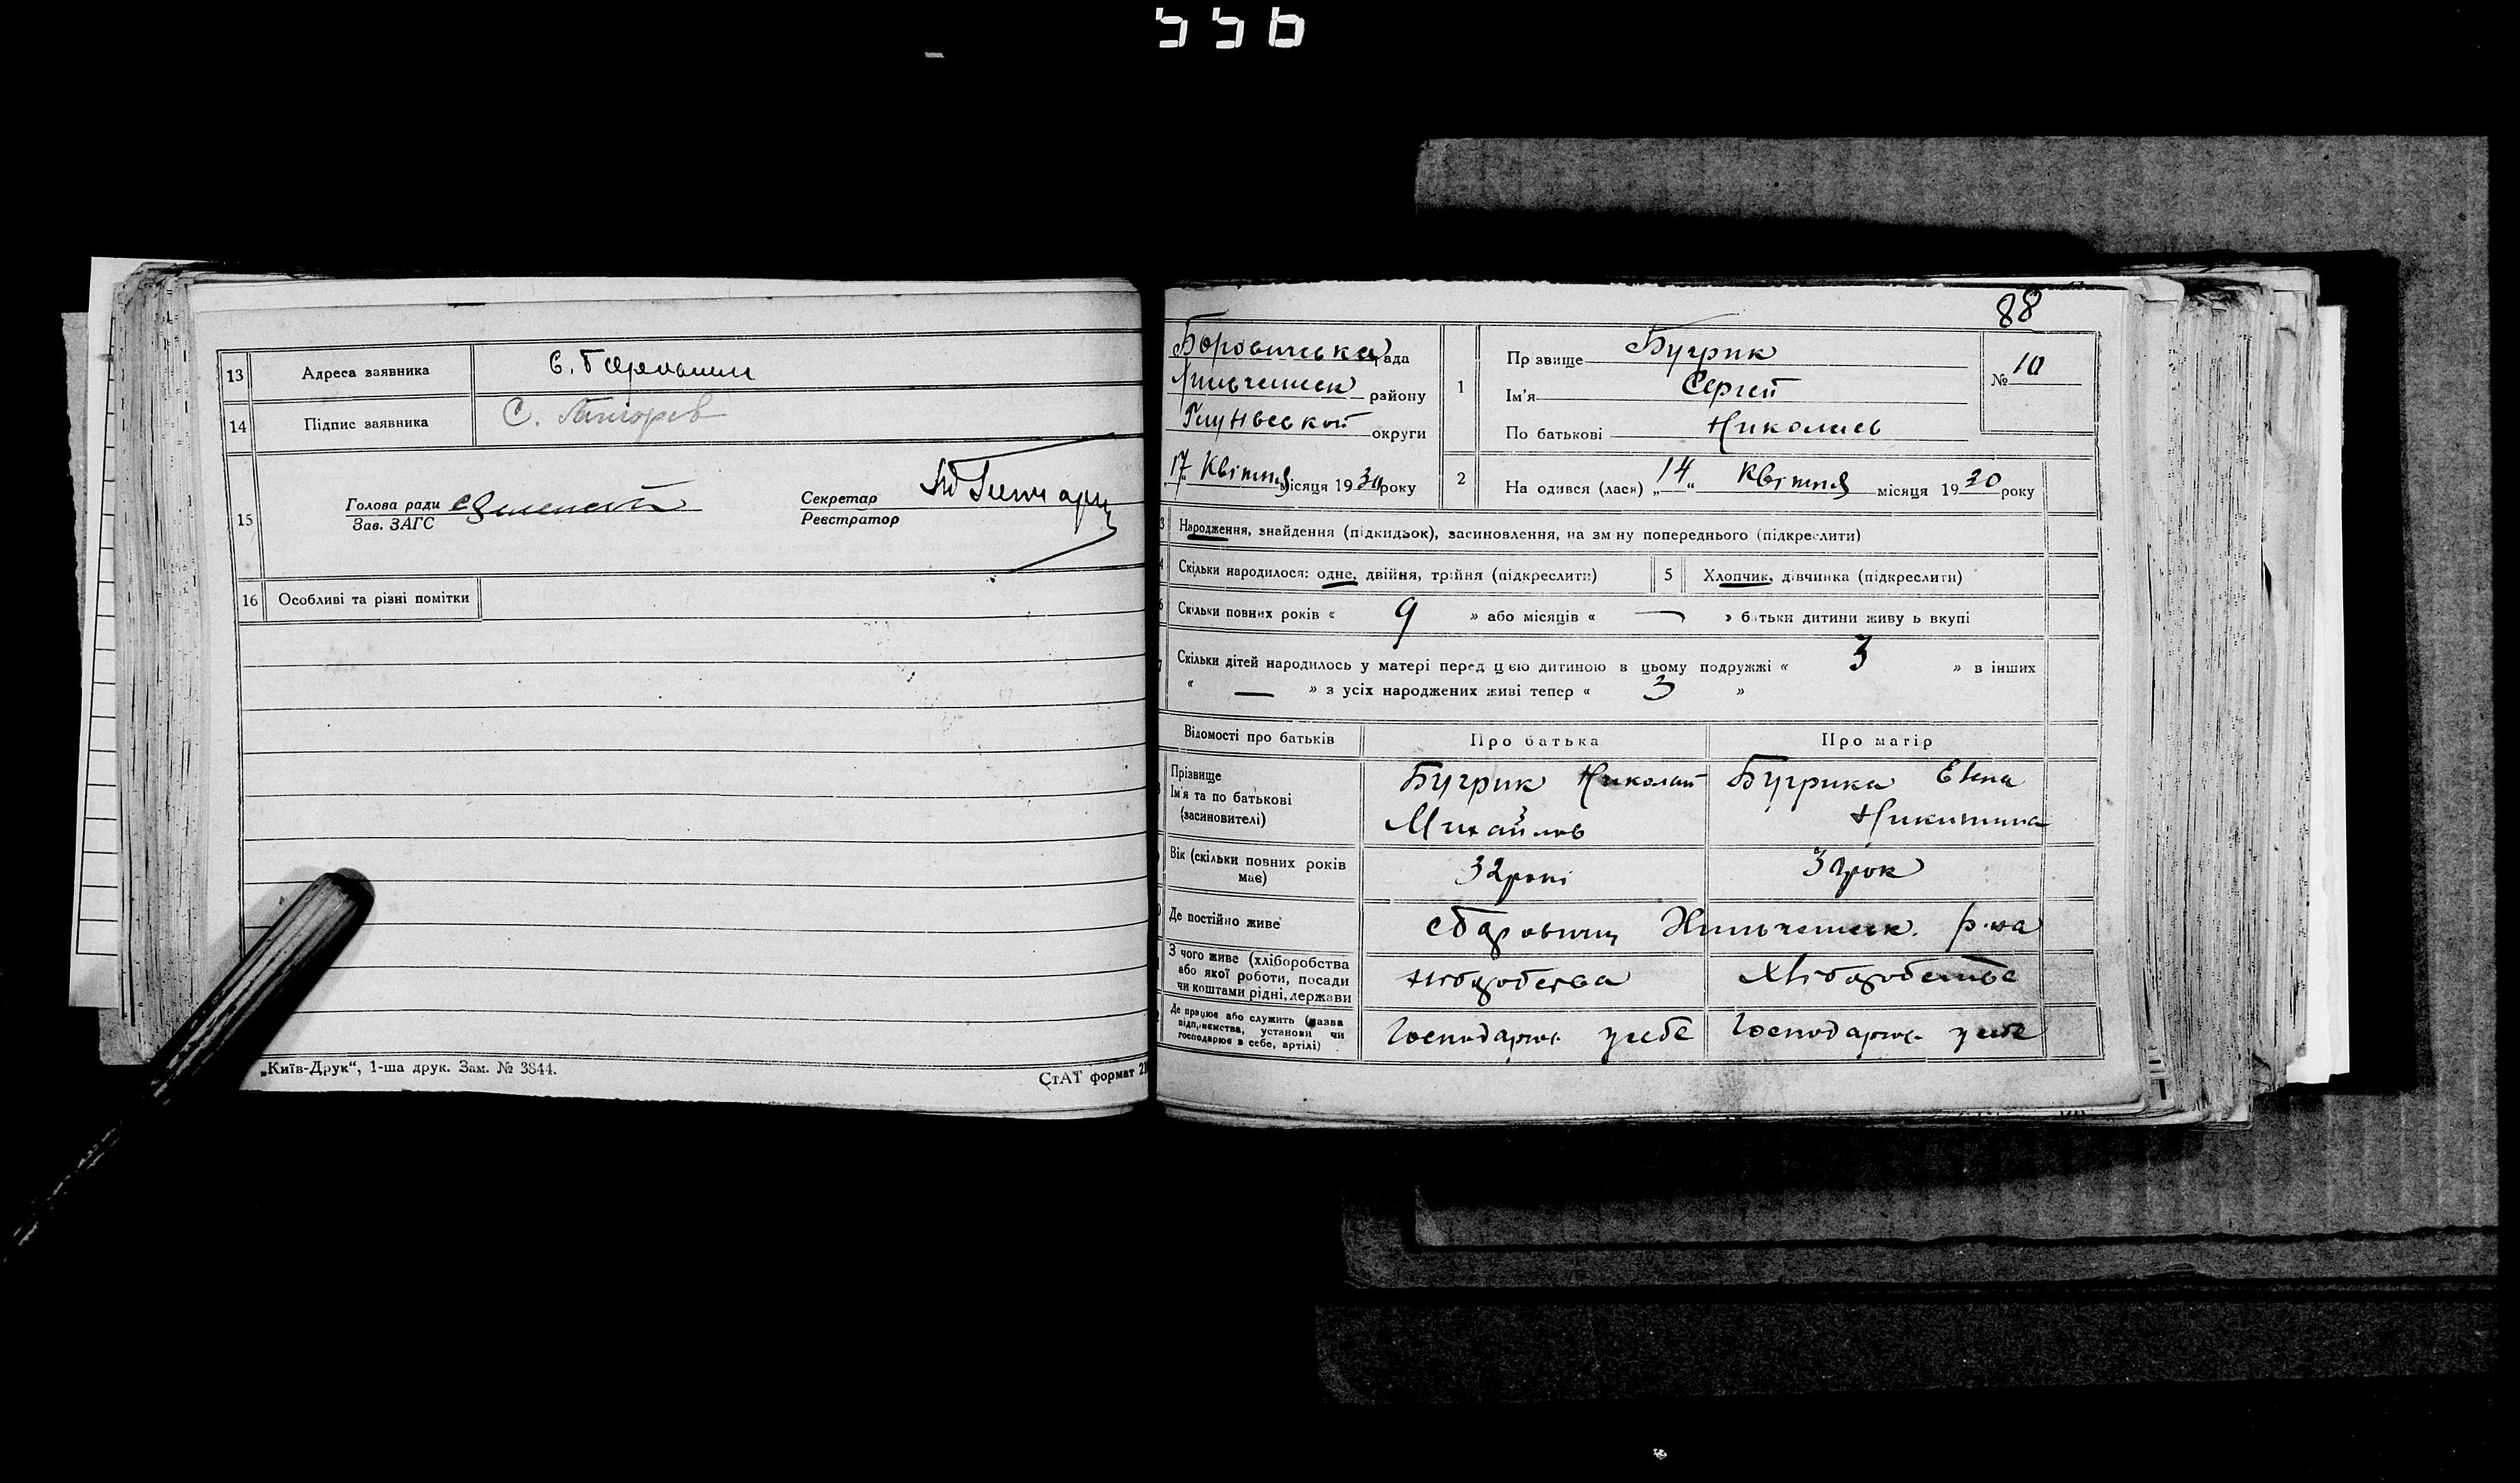 556
13 Адреса заявника
14 Підпис заявника С.
15 Голова ради
Зав. ЗАГС
Секретар
Реєстратор
16 Особливі та різні помітки
„Київ-Друк“, 1-ша друк. Зам. № 3844.
СтАТ формат
88
Боровичська рада
району
округи
„17“ Квітня місяця 1930 року
1 Пр звище Бугрик
Ім'я Сергей
По батькові Николаев
№ 10
2 На одився (лася) „14“ Квітня місяця 1930 року
Народження, знайдення (підкидьок), засиновлення, на зм ну попереднього (підкреслити)
Скільки народилося: одне, двійня, трійня (підкреслити) 5 Хлопчик, дівчинка (підкреслити)
Скільки повних років « 9 » або місяців « — » б тьки дитини живу ь вкупі
Скільки дітей народилось у матері перед цією дитиною в цьому подружжі « 3 » в інших
« — » з усіх народжених живі тепер « 3 »
Відомості про батьків Про батька Про матір
Прізвище
Ім'я та по батькові
(засновителі)
Бугрик Николай
Михайлов
Бугрика Елена
Никитина
Вік (скільки повних років
має)
32 рокі
32 рок
Де постійно живе с Боровичи р-на
З чого живе (хліборобства
або якої роботи, посади
чи коштами рідні, держави
хліборобства
Хліборобства
Де працює або служить (назва
підприємства, установи чи
господарює в себе, артілі)
Господарює у себе
Господарює у себе